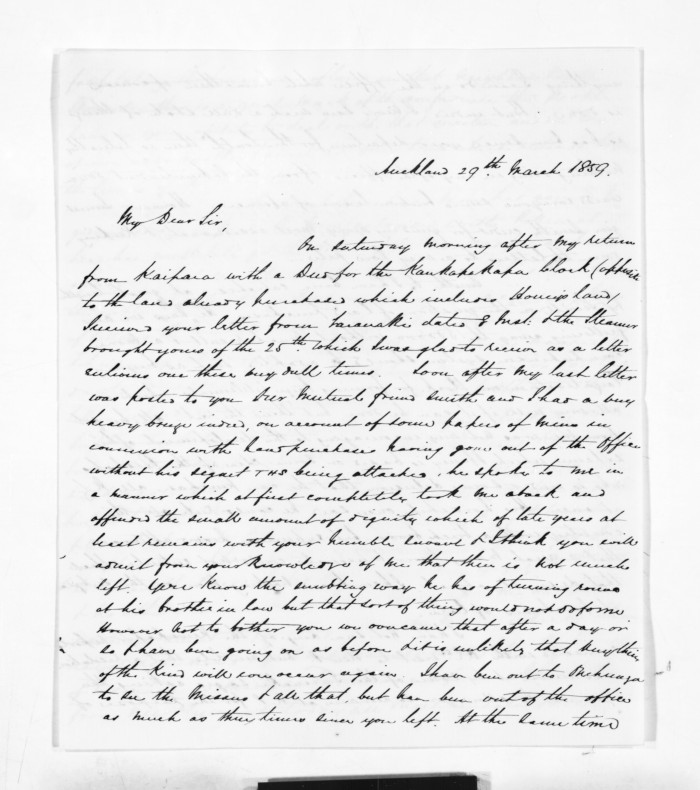 Auckland 29th March 1859.
My Dear Sir,
On Saturday morning after my return
from Kaipara with a Deed for the Kaukapakapa block (opposite
to the land already purchased which includes Honeys land)
I received your letter from Taranaki dated 8 Inst: & the Steamer
brought yours of the 25th which I was glad to receive as a letter
enlivens one these very dull times. Soon after my last letter
was posted to you Our Mutual friend Smith and I had a very
heavy breeze indeed, on account of some papers of mine in
connexion with land purchase having gone out of the Office
without his signet THS being attached. he spoke to me in
a manner which at first completely took me aback and
offended the small amount of dignity which of late years at
least remains with your humble servant & I think you will
admit from your knowledge of me that there is not much
left. You know the snubbing way he has of turning round
at his brother in law but that sort of thing would not do for me
However not to bother you we overcame that after a day or
so I have been going on as before & it is unlikely that anything
of the kind will soon occur again. I have been out to Onehunga
to see the Missus & all that, but have been out of the office
as much as three times since you left. At the same time